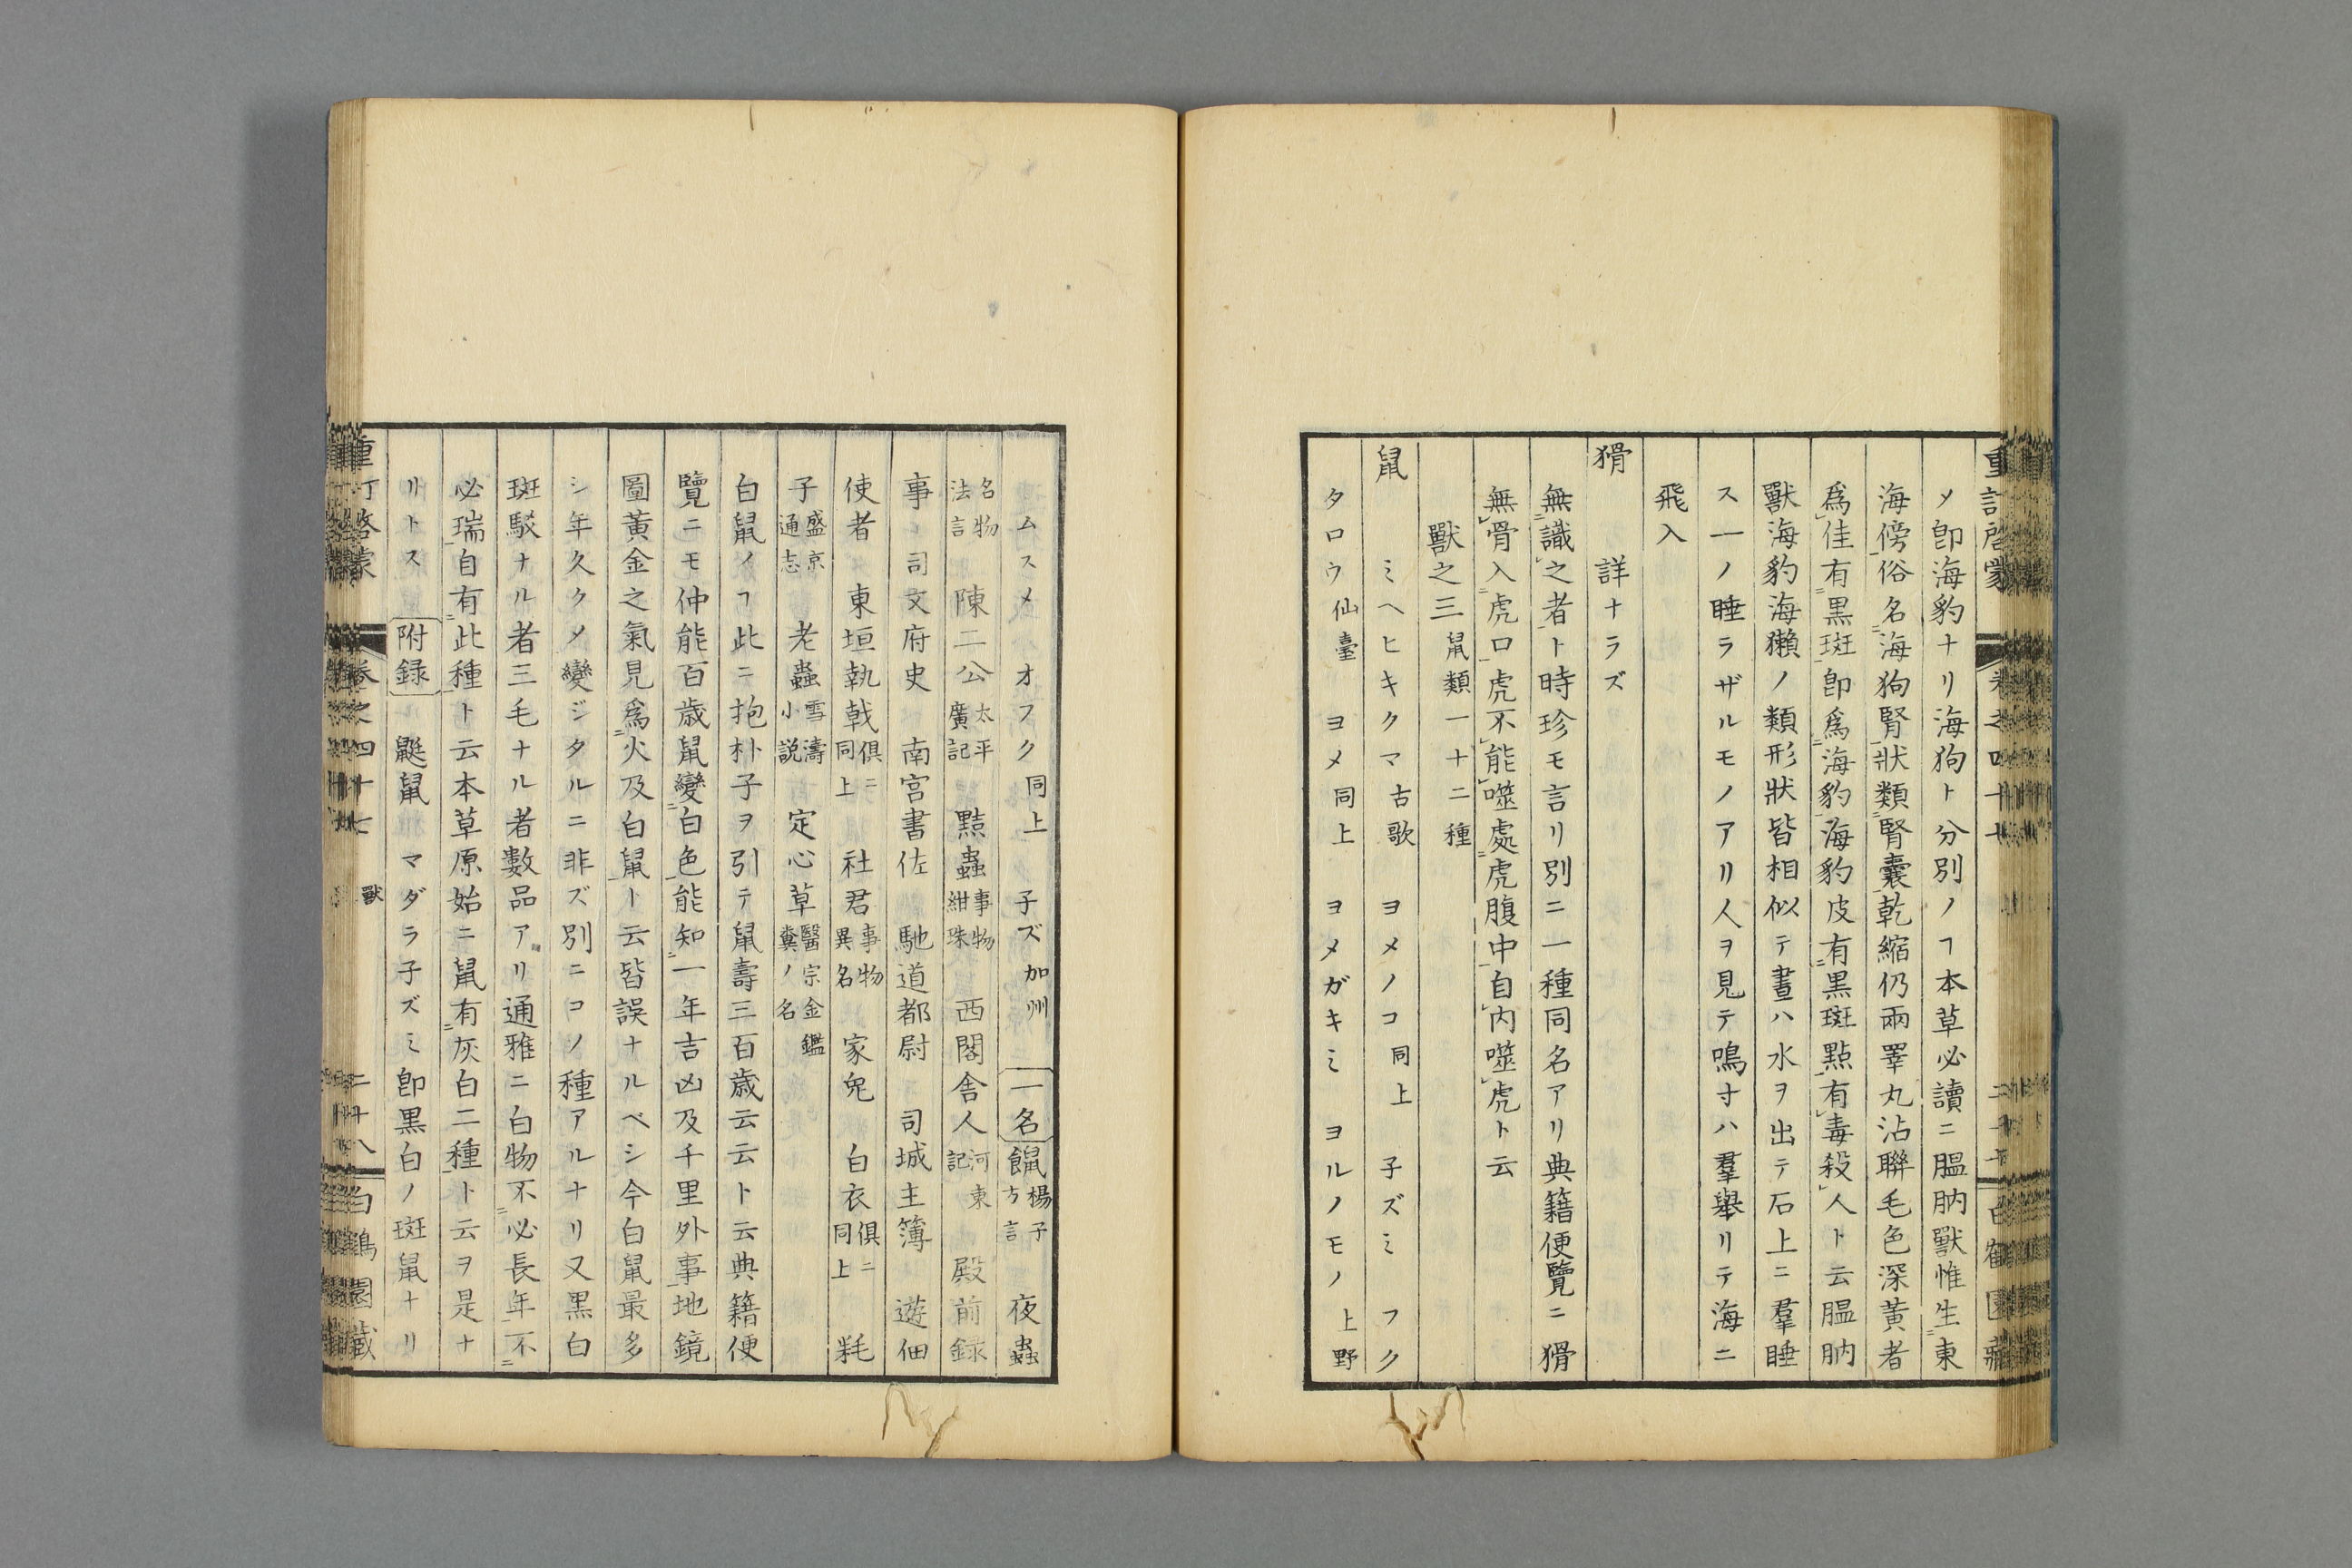 重訂啓蒙 卷之四十七 白鶴園藏
〆卽海豹ナリ海狗ト分別ノヿ本草必讀ニ膃肭獸惟生東
海傍俗名海狗腎狀類腎囊乾縮仍兩睪丸沾聯毛色深黃者
爲佳有黒斑卽爲海豹海豹皮有黒斑點有毒殺人ト云膃肭
獸海豹海獺ノ類形狀皆相似テ晝ハ水ヲ出テ石上ニ羣睡
ス一ノ睡ラザルモノアリ人ヲ見テ鳴寸ハ羣舉リテ海ニ
飛入
猾 詳ナラズ
無識之者ト時珍モ言リ別ニ一種同名アリ典籍便覽ニ猾
無骨入虎口虎不能噬處虎腹中自内噬虎ト云
獸之三鼠類一十二種
鼠 ミヘヒキクマ古歌 ヨメノコ同上 子ズミ フク
タロウ仙臺 ヨメ同上 ヨメガキミ ヨルノモノ上野
ムスメ オフク同上 子ズ加州 一名䑕楊子方言 夜蟲
名物法言 陳二公太平廣記 黠蟲事物紺珠 西閣舎人河東記 殿前録
事 司文府史 南宮書佐 馳道都尉 司城主簿 遊佃
使者 東垣執戟俱ニ同上 社君事物異名 家兔 白衣俱ニ同上 耗
子盛京通志 老蟲雪濤小説 定心草醫宗金鑑糞ノ名
白鼠ノヿ此ニ抱朴子ヲ引テ鼠壽三百歳云云ト云典籍便
覽ニモ仲能百歳鼠變白色能知一年吉凶及千里外事地鏡
圖黃金之氣見爲火及白鼠ト云皆誤ナルベシ今白鼠最多
シ年久ク〆變ジタルニ非ズ別ニコノ種アルナリ又黒白
斑駁ナル者三毛ナル者數品アリ通雅ニ白物不必長年不
必瑞自有此種ト云本草原始ニ鼠有灰白二種ト云ヲ是ナ
リトス 附録 鼮鼠 マダラ子ズミ卽黒白ノ斑鼠ナリ
重訂啓蒙 卷之四十七 獸 二十八 白鶴園藏